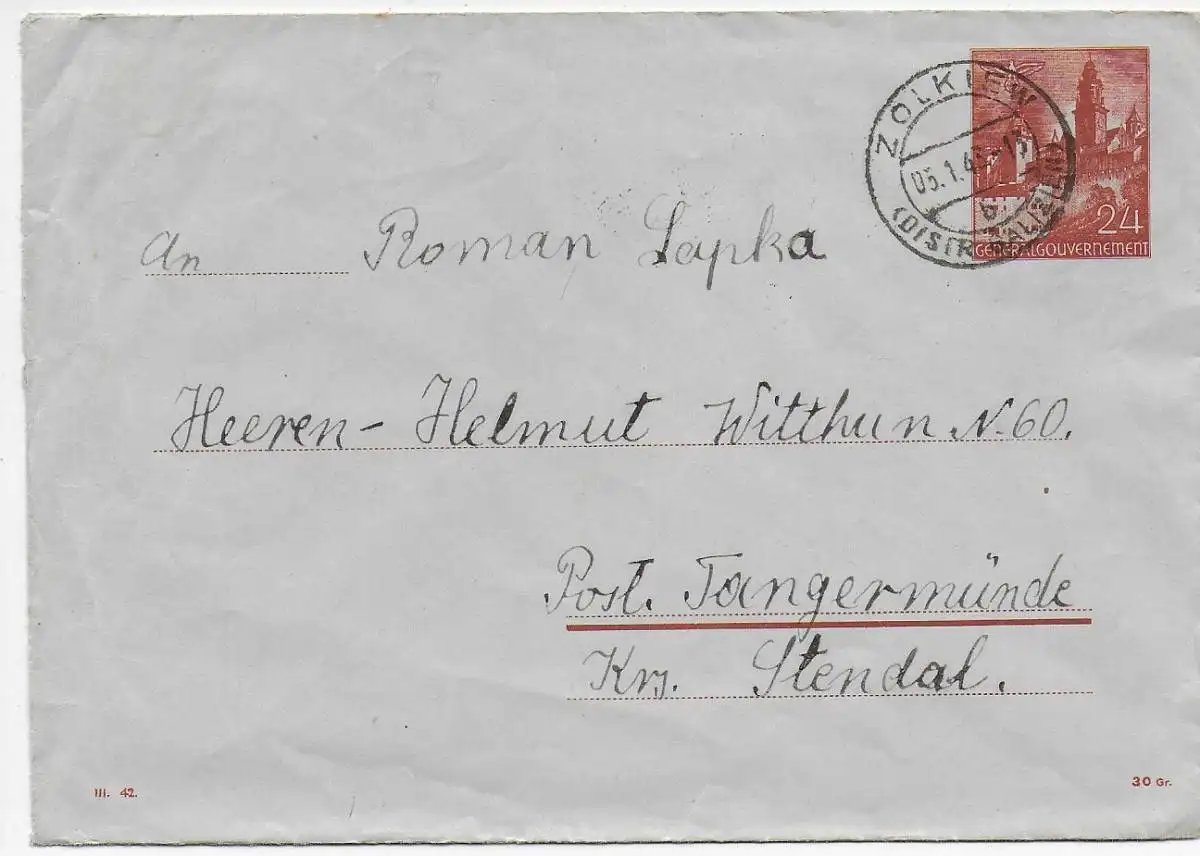 ZOLKIEW
05.1.43.-15
b
(DISTR. GALIZIEN)
24
GENERALGOUVERNEMENT
An Roman Lapka
Heeren- Helmut Witthun N. 60.
Post. Tangermünde
Krs. Stendal.
III. 42.
30 Gr.